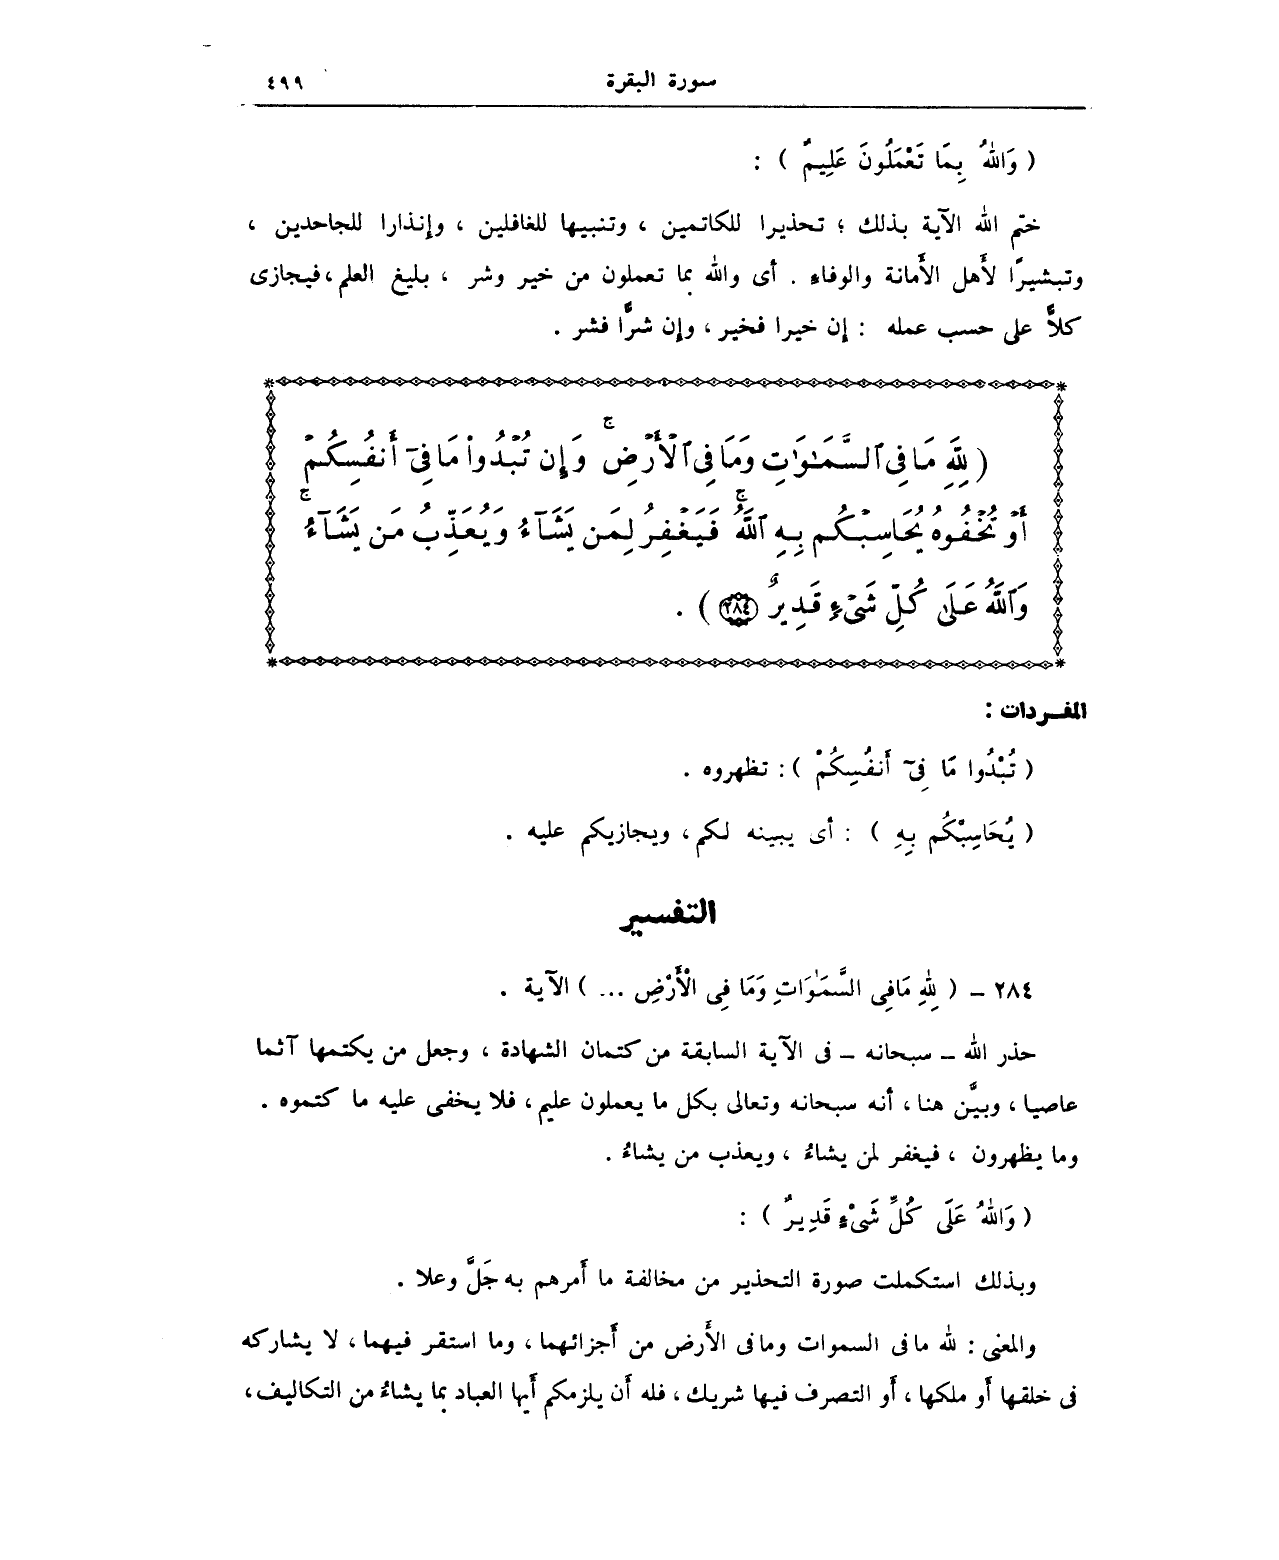 سورة البقرة ٤٩٩
( وَاللهُ بِمَا تَعْمَلُونَ عَلِيمٌ ) :
ختم الله الآية بذلك ؛ تحذيرا للكاتمين ، وتنبيها للغافلين ، وإنذارا للجاحدين ،
وتبشيرًا لأَهل الأَمانة والوفاء . أى والله بما تعملون من خير وشر ، بليغ العلم ،فيجازى
كلاًّ على حسب عمله : إن خيرا فخير ، وإن شرًّا فشر .
( لِلَّهِ مَا فِى ٱلسَّمَـٰوَٰتِ وَمَا فِى ٱلْأَرْضِ ۚ وَإِن تُبْدُوا۟ مَا فِىٓ أَنفُسِكُمْ
أَوْ تُخْفُوهُ يُحَاسِبْكُم بِهِ ٱللَّهُ ۖ فَيَغْفِرُ لِمَن يَشَآءُ وَيُعَذِّبُ مَن يَشَآءُ ۚ
وَٱللَّهُ عَلَىٰ كُلِّ شَىْءٍ قَدِيرٌ ٢٨٤ ) .
المفـردات :
( تُبْدُوا مَا فِىٓ أَنفُسِكُمْ ) : تظهروه .
( يُحَاسِبْكُم بِهِ ) : أى يبينه لكم ، ويجازيكم عليه .
التفسير
٢٨٤ – ( لِلهِ مَافِى السَّمَـٰوَاتِ وَمَا فِى الْأَرْضِ ... ) الآية .
حذر الله – سبحانه – فى الآية السابقة من كتمان الشهادة ، وجعل من يكتمها آثما
عاصيا ، وبيَّن هنا ، أنه سبحانه وتعالى بكل ما يعملون عليم ، فلا يخفى عليه ما كتموه .
وما يظهرون ، فيغفر لمن يشاءُ ، ويعذب من يشاءُ .
( وَاللهُ عَلَى كُلِّ شَىْءٍ قَدِيرٌ ) :
وبذلك استكملت صورة التحذير من مخالفة ما أَمرهم به جَلَّ وعلا .
والمعنى : لله مافى السموات ومافى الأَرض من أَجزائهما ، وما استقر فيهما ، لا يشاركه
فى خلقها أَو ملكها ، أَو التصرف فيها شريك ، فله أَن يلزمكم أَيها العباد بما يشاءُ من التكاليف ،